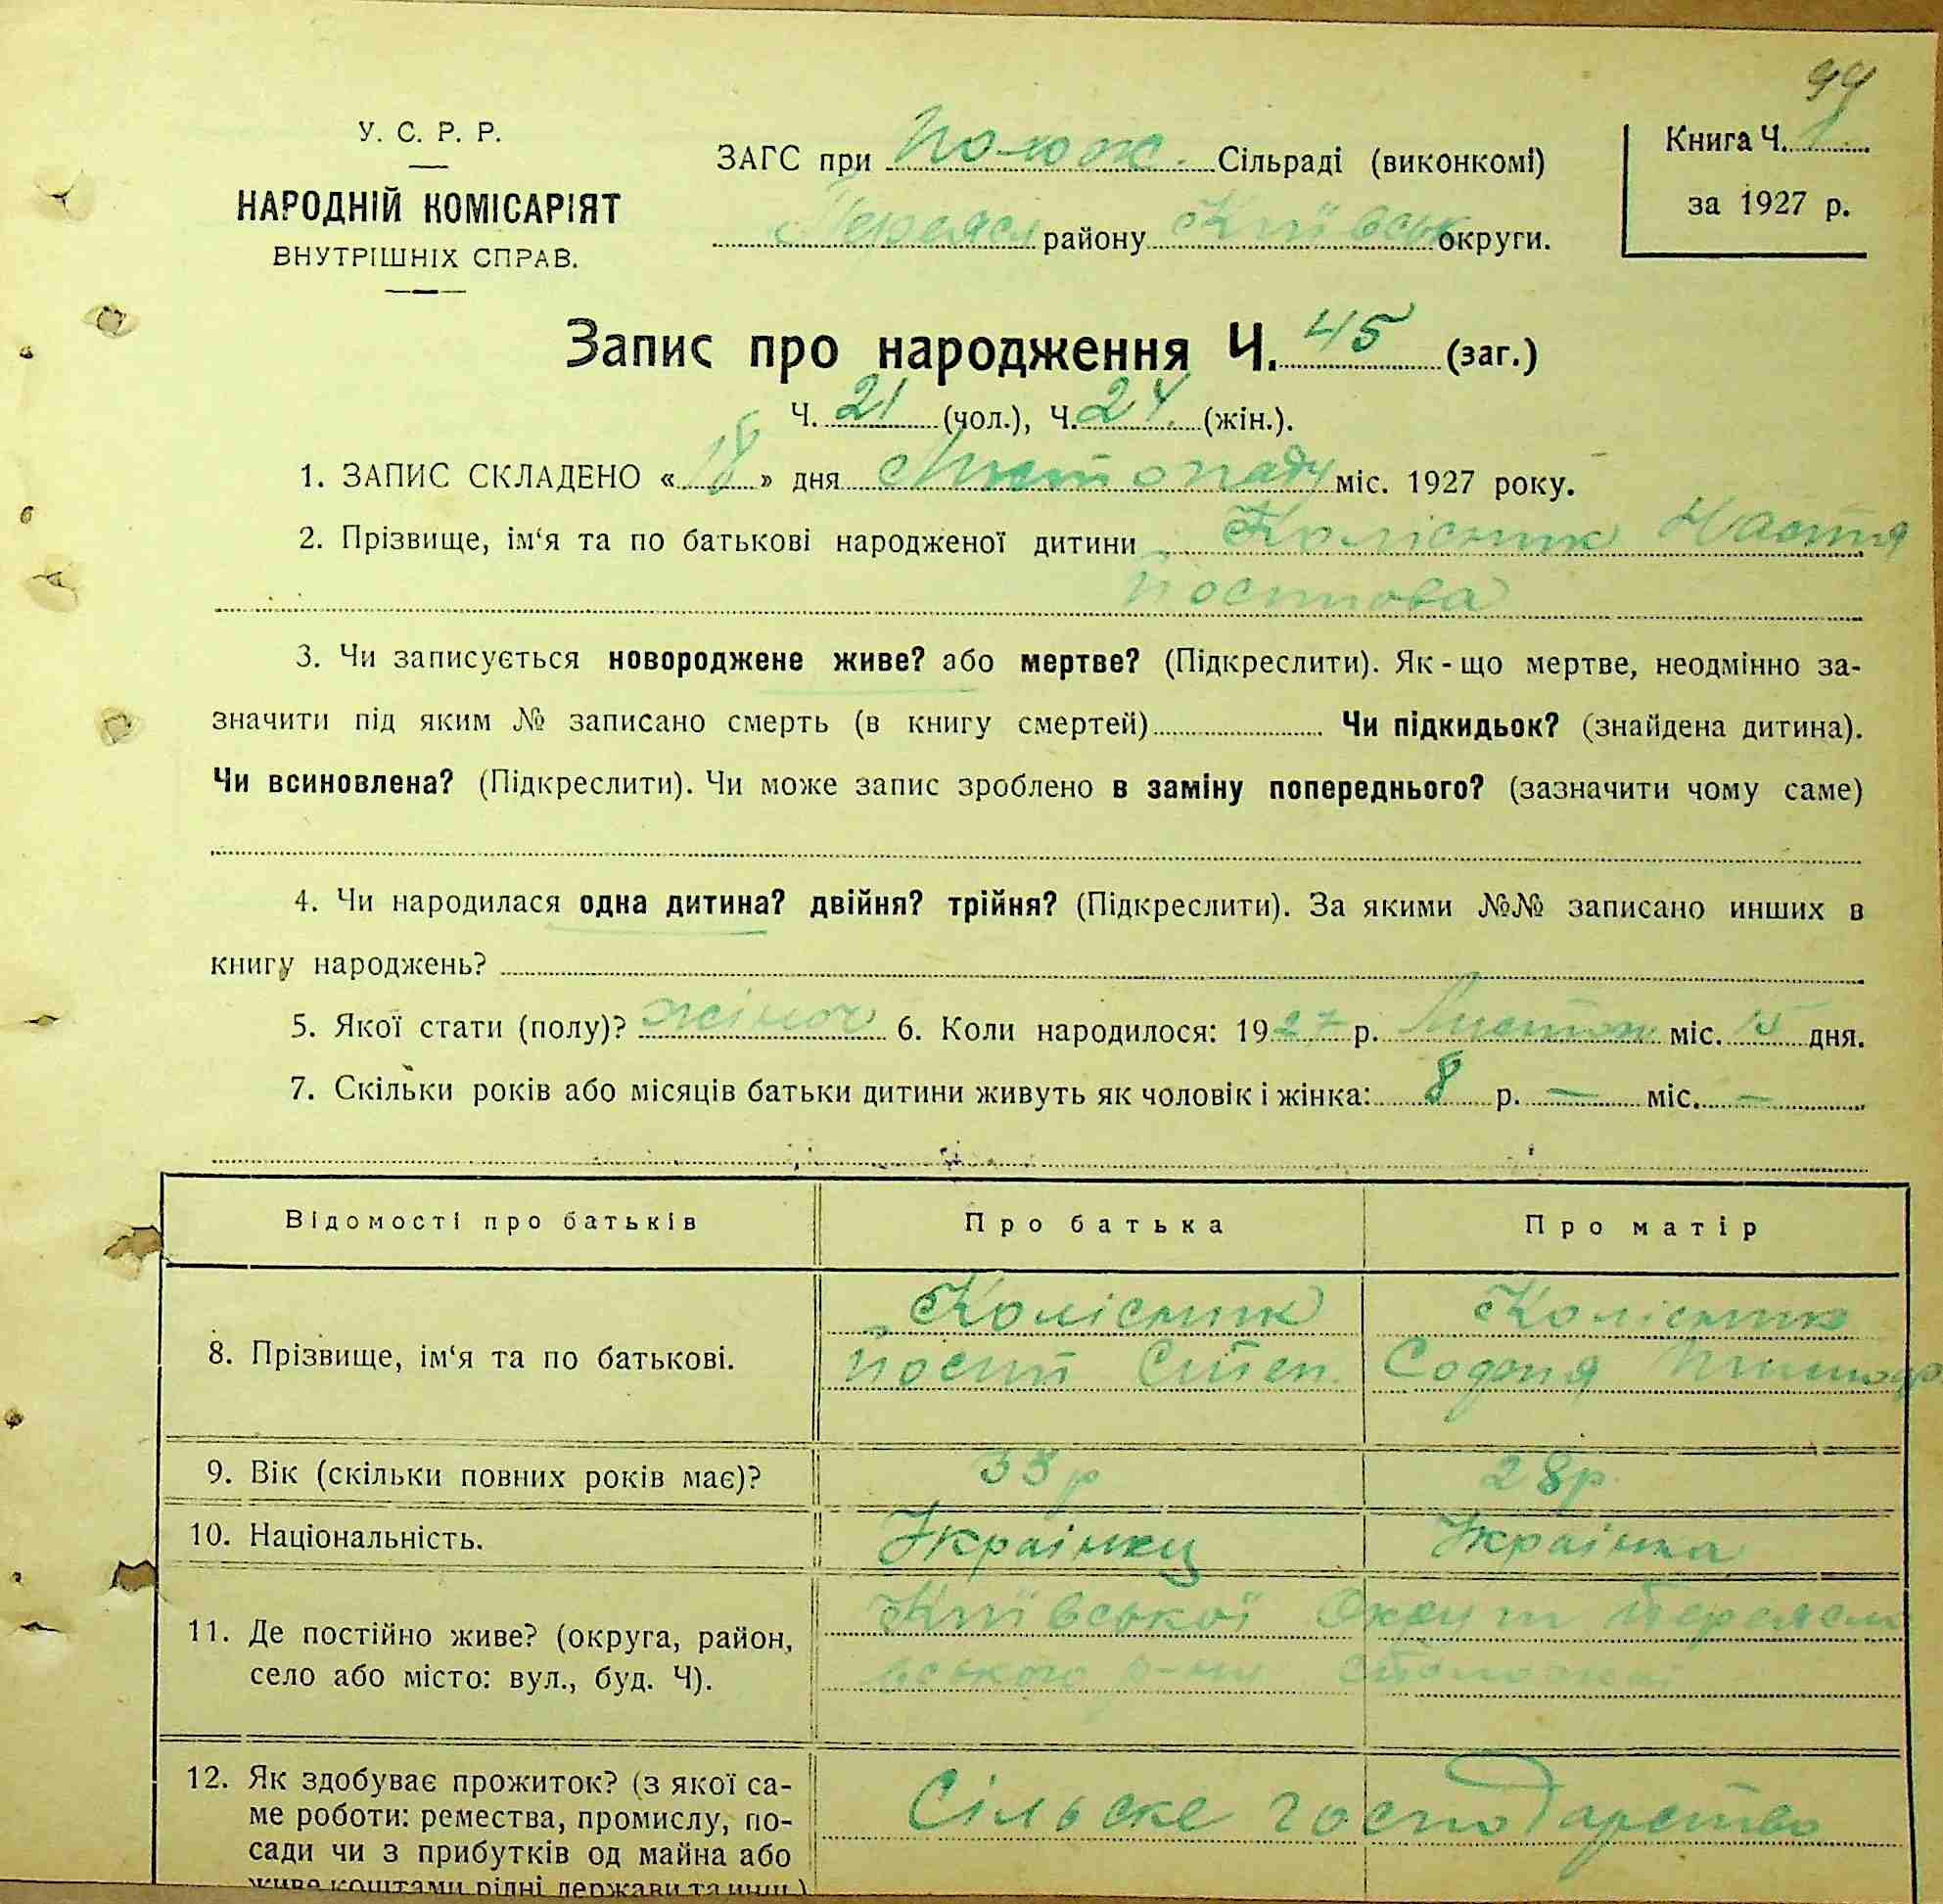 99
У. С. Р. Р.
НАРОДНІЙ КОМІСАРІЯТ
ВНУТРІШНІХ СПРАВ.
ЗАГС при Полож. Сільраді (виконкомі)
Переясл району Київськ округи.
Книга Ч. 1
за 1927 р.
Запис про народження Ч. 45 (заг.)
Ч. 21 (чол.), Ч. 24 (жін.).
1. ЗАПИС СКЛАДЕНО « 18 » дня Листопаду міс. 1927 року.
2. Прізвище, ім‘я та по батькові народженої дитини Колісник Настя
Йостпова
3. Чи записується новороджене живе? або мертве? (Підкреслити). Як-що мертве, неодмінно за-
значити під яким № записано смерть (в книгу смертей) Чи підкидьок? (знайдена дитина).
Чи всиновлена? (Підкреслити). Чи може запис зроблено в заміну попереднього? (зазначити чому саме)
4. Чи народилася одна дитина? двійня? трійня? (Підкреслити). За якими №№ записано инших в
книгу народжень?
5. Якої стати (полу)? жіноч 6. Коли народилося: 1927 р. Листоп. міс. 15 дня.
7. Скільки років або місяців батьки дитини живуть як чоловік і жінка: 8 р. — міс. —
Відомості про батьків Про батька Про матір
8. Прізвище, ім‘я та по батькові.
Колісник Колісник
Степ. София
9. Вік (скільки повних років має)? 33 р 28 р.
10. Національність. Українец Українка
11. Де постійно живе? (округа, район,
село або місто: вул., буд. Ч).
Київської Округи Переясла
вського р-ну
12. Як здобуває прожиток? (з якої са-
ме роботи: ремества, промислу, по-
сади чи з прибутків од майна або
живе коштами рідні держави та инш.)
Сільске господарство